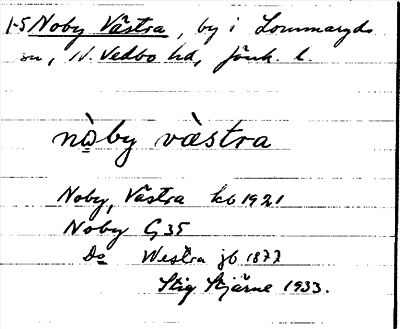 1-5 Noby Västra, by i Lommaryds
sn, N. Vedbo hd, Jönk. l.
nò̲by vàestra
Noby, Västra kb 1921
Noby G 35
Do Westra jb 1877
Stig Stjärne 1933.